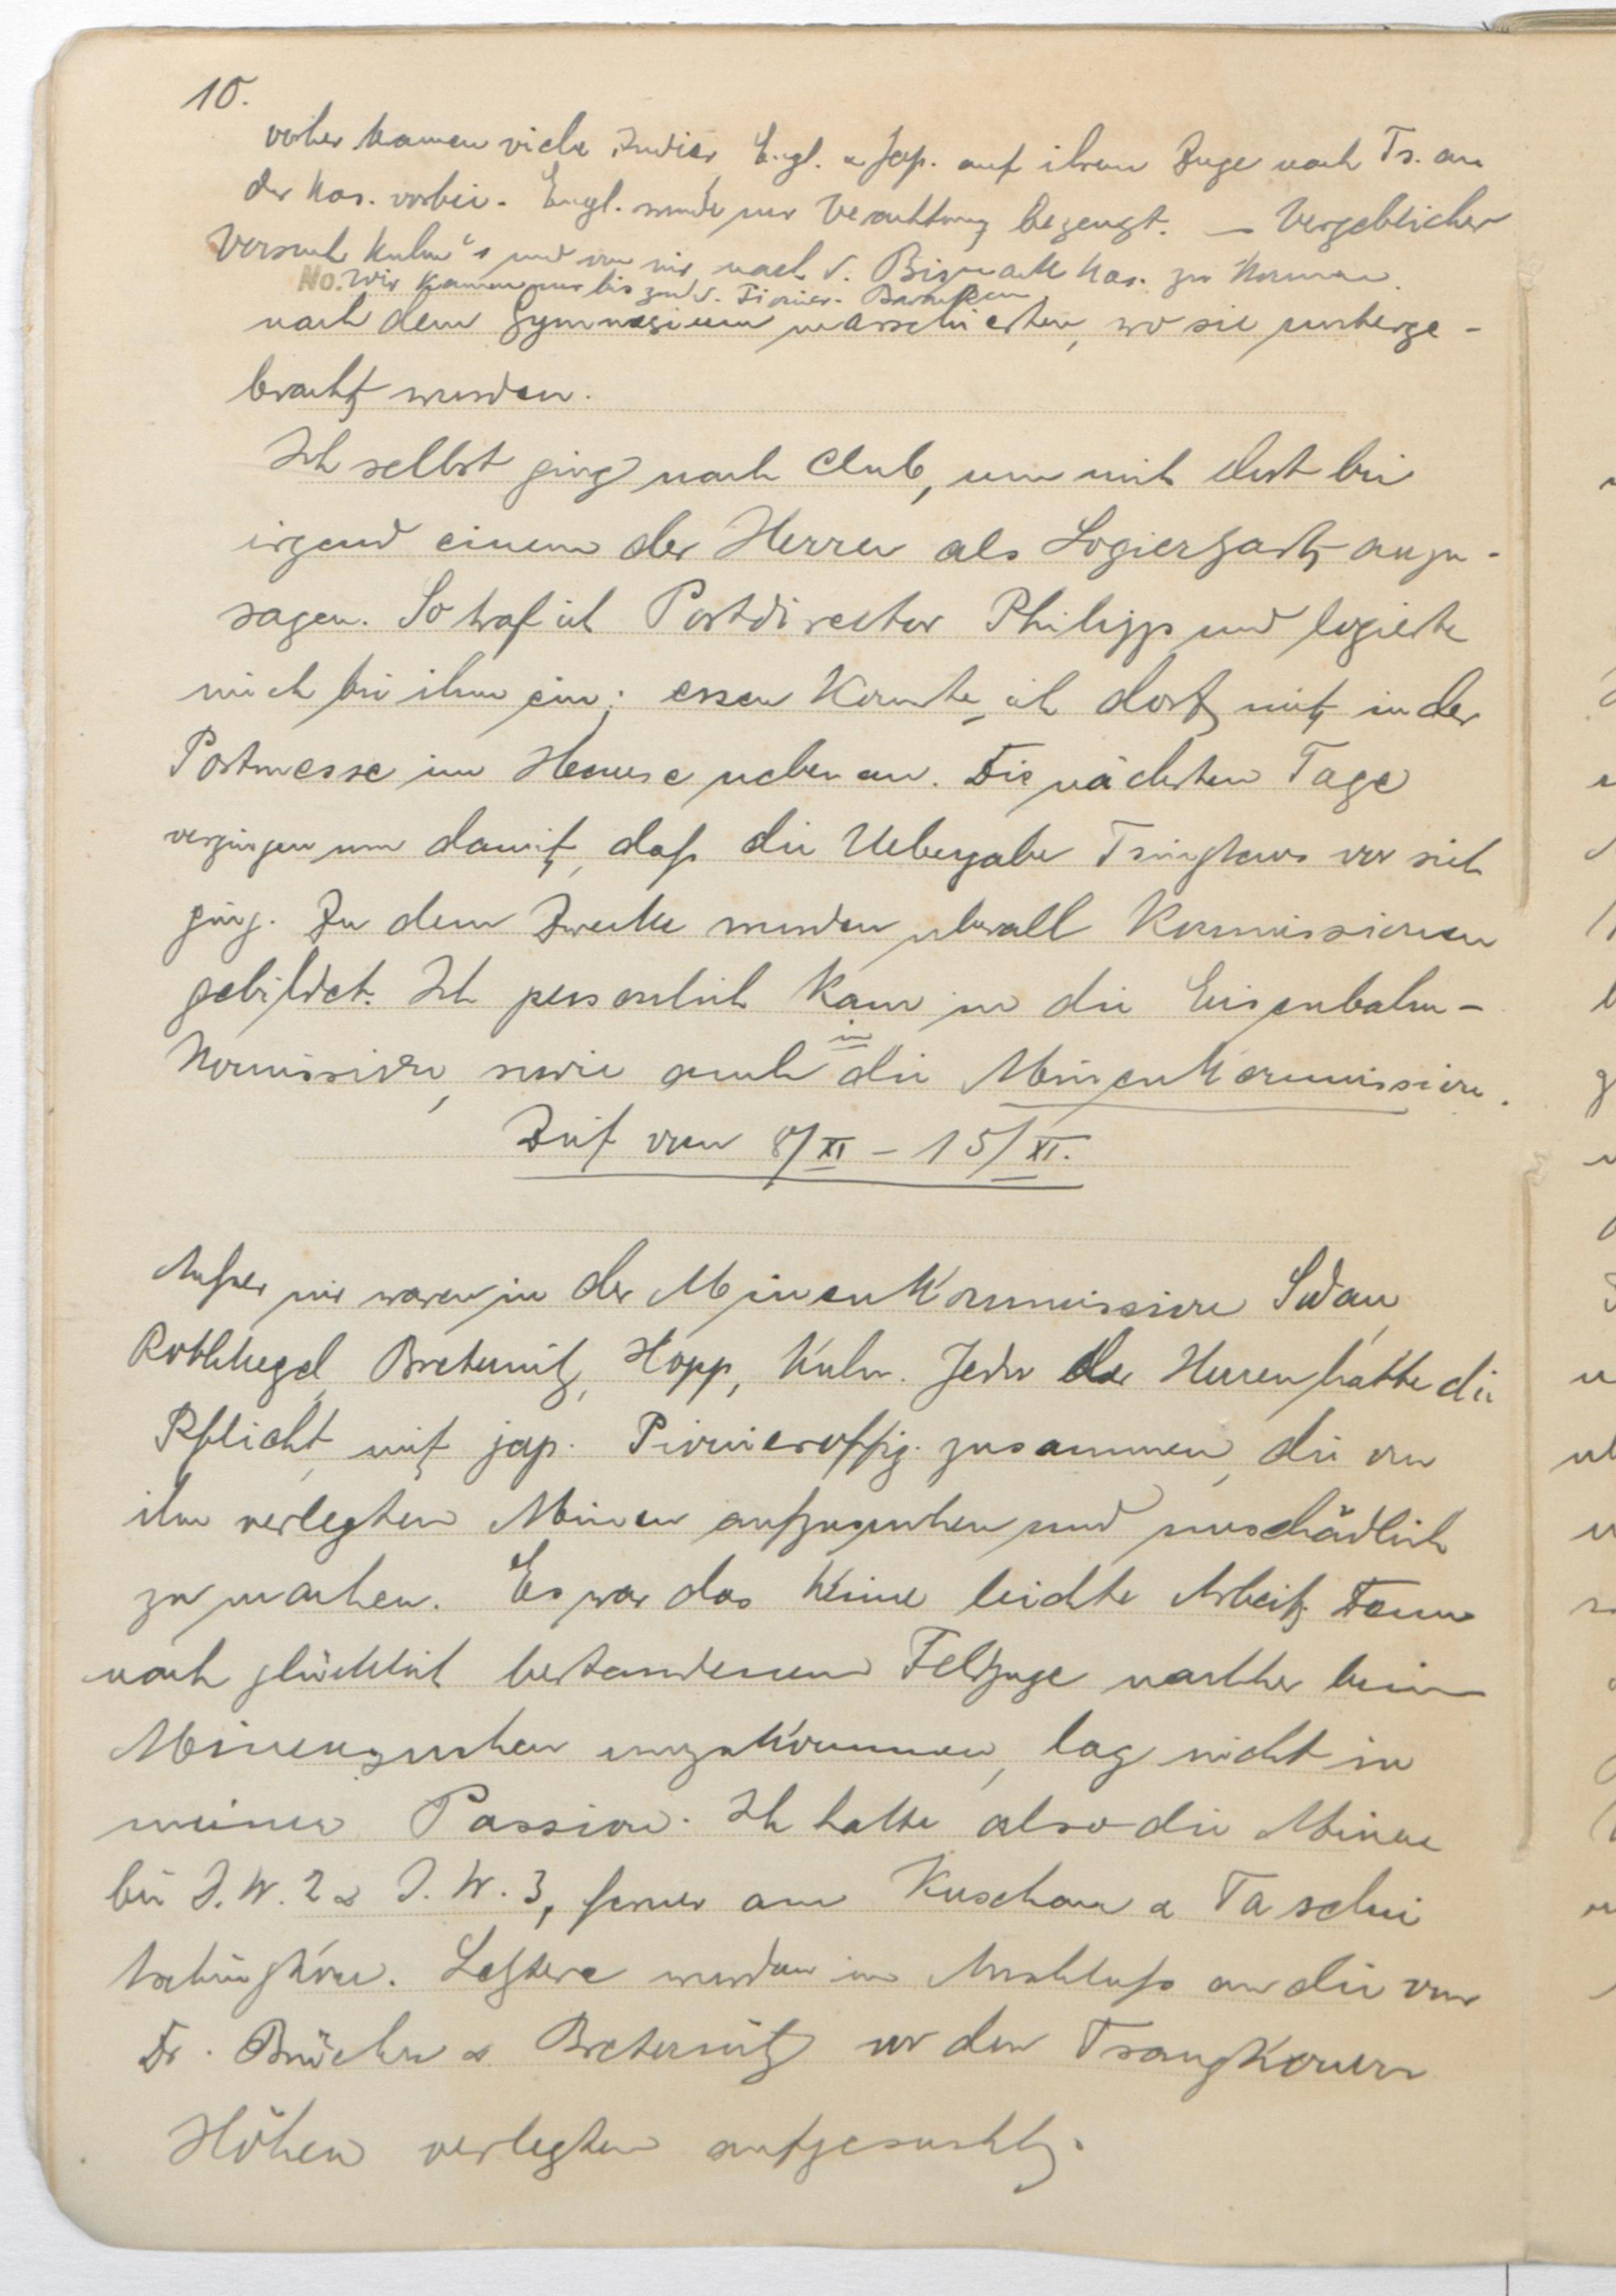 10.
vorher kamen viele Indier, Engl. & Jap. auf ihrem Zuge nach Ts. an
der Kas. vorbei. Engl. wurde nur Verachtung bezeugt. — Vergeblicher
Versuch Kuhn's und von mir, nach d. Bismarck Kas. zu kommen.
No. Wir kamen nur bis zu d. Pionier-Baracken
nach dem Gymnasium marschierten, wo sie unterge-
bracht wurden.
Ich selbst ging nach Club, um mich dort bei
irgend einem der Herren als Logiergast anzu-
sagen. So traf ich Postdirector Philipp und logierte
mich bei ihm ein; essen konnte ich dort mit in der
Postmesse im Hause nebenan. Die nächsten Tage
vergingen nun damit, daß die Uebergabe Tsingtaus vor sich
ging. Zu dem Zwecke wurden überall Kommissionen
gebildet. Ich persönlich kam in die Eisenbahn-
Kommission, sowie auch in die Minenkommission.
Zeit von 8/XI – 15/XI.
Außer mir waren in der Minenkommission Sodan,
Rothkegel, Breternitz, Hopp, Kuhn. Jeder der Herren hatte die
Pflicht, mit jap. Pionieroffiz. zusammen, die von
ihm verlegten Minen aufzusuchen und unschädlich
zu machen. Es war das keine leichte Arbeit. Denn
nach glücklich bestandenem Feldzuge nachher beim
Minensuchen umzukommen, lag nicht in
meiner Passion. Ich hatte also die Minen
bei I.W. 2 & I.W. 3, ferner am Kuschan & Taschi
tschingkou. Letztere wurden im Anschluß an die von
Dr. Brücher & Breternitz vor den Tsangkouer
Höhen verlegten aufgesucht.